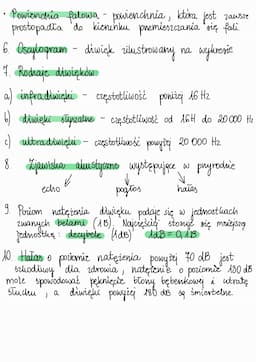 • Powierzchnia falowa - powierzchnia, która jest zawsze
prostopadła do kierunku przemieszczania się fali
6. Oscylogram - dźwięk zilustrowany na wykresie
7. Rodzaje dźwięków
a) infradźwięki - częstotliwość poniżej 16 Hz
b) dźwięki słyszalne - częstotliwość od 16 H do 20 000 Hz
c) ultradźwięki - częstotliwość powyżej 20 000 Hz
8. Zjawiska akustyczne występujące w przyrodzie
echo pogłos hałas
9. Poziom natężenia dźwięku podaje się w jednostkach
zwanych belami (1B). Najczęściej stosuje się mniejszą
jednostkę: decybele (1dB) 1dB = 0,1B
10. Hałas o poziomie natężenia powyżej 70 dB jest
szkodliwy dla zdrowia, natężenie o poziomie 130 dB
może spowodować pęknięcie błony bębenkowej i utratę
słuchu, a dźwięki powyżej 180 dB są śmiertelne.